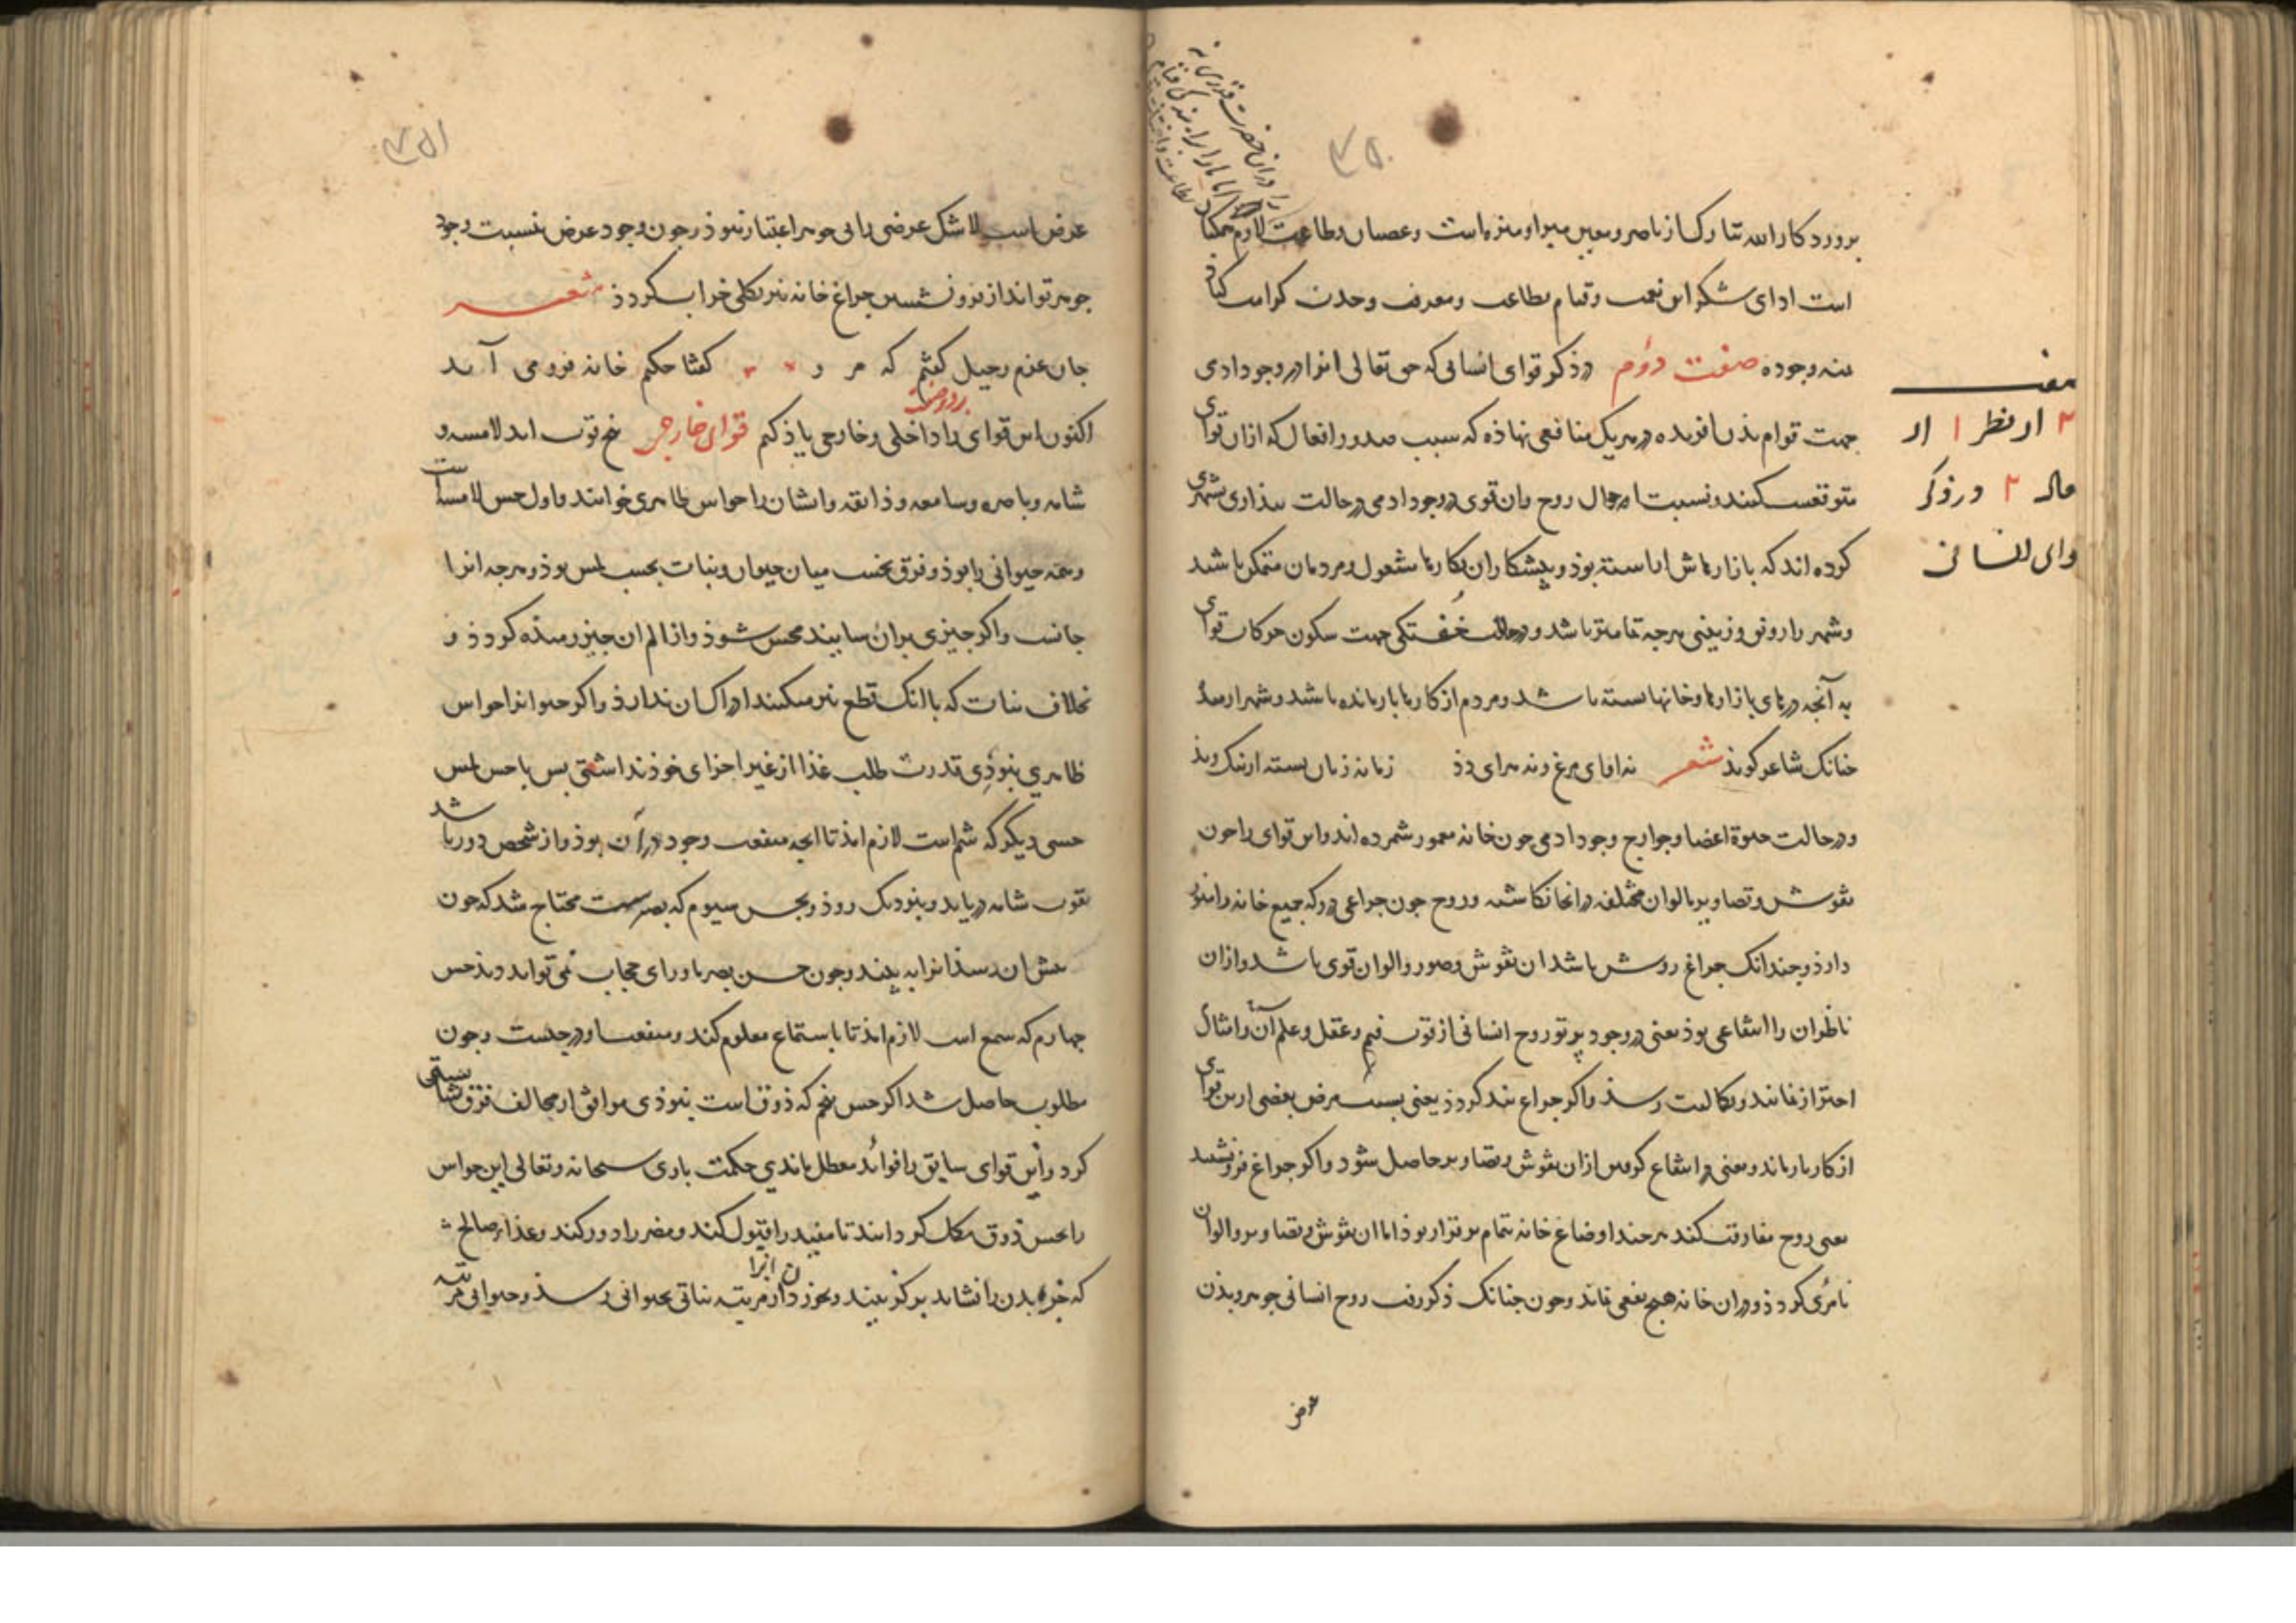 ۳۵۰
را در ان حضرت قدری نه
اما ما را راه بندگی
بروردکار الله تبارک از ناصر و معین مبرا و منزه است و عصیان و طاعت
است ادای شکر این نعمت و قیام بطاعت و معرفت وحدت
منه وجوده صفت دوم در ذکر قوای انسانی که حق تعالی انرا در وجود ادمی
جهت قوام بدن افریده و در هر یک منافعی نهاذه که سبب صدور افعال که ازان قوای
متوقعست کنند و نسبت احوال روح و ان قوی در وجود ادمی در حالت بیذاری بشهری
کرده اند که بازارهاش اراسته بوذ و پیشکاران بکارها مشغول و مردمان متمکن باشند
و شهر را رونق و زینتی هرجه تمامتر باشد و در حالت خفتکی جهت سکون حرکات قوای
به آنجه درهای بازارها و خانها بسته باشد و مردم از کارها باز مانده باشند و شهر
جنانک شاعر کویذ شعر نه اوای مرغ و نه هرای دذ زمانه زبان بسته از نیک و بذ
و در حالت حیوة اعضا و جوارح وجود ادمی جون خانه معمور شمرده اند و این قوای را جون
نقوش و تصاویر بالوان مختلفه در انجا نکاشته و روح جون جراغی در و که جمیع خانه را منور
دارذ و جندانک جراغ روشن باشد ان نقوش و صور و الوان قوی باشد و ازان
ناظران را انتفاعی بوذ یعنی در وجود پرتو روح انسانی از قوت فهم و عقل و علم آن و امثال
احتراز نمایند و بکمالیت رسذ و اکر جراغ بند کردذ یعنی بسبب مرض بعضی ازین قوای
از کار باز ماند و معنی و انتفاع کی ازان نقوش و تصاویر حاصل شود و اکر جراغ فرو نشیند
یعنی روح مفارقت کند هرجند اوضاع خانه تمام برقرار بوذ اما ان نقوش و تصاویر و الوان
نامرئی کردذ و در ان خانه هیج نفعی نماند و جون جنانک ذکر رفت روح انسانی جوهر و بدن
عرض
صفت
۲ از نظر ۱ از
مقاله ۲ در ذکر
قوای انسانی
۳۵۱
عرض است لا شک عرض را بی جوهر اعتبار نبوذ و جون وجود عرض بنسبت وجود
جوهر تواند از فرو نشستن جراغ خانه نیز بکلی خراب کردذ شعر
جان عزم رحیل کفتم که مرو کفتا جکنم خانه فرو می آید
اکنون این قوای را داخلی و خارجی یاذ کنم قوای خارجی پنج قوت اند لامسه و
شامه و باصره و سامعه و ذایقه و ایشان را حواس ظاهری خوانند و اول حس لامسه است
و همه حیوانی را بوذ و فرق نخست میان حیوان و نبات بحسب لمس بوذ و هرجه انرا
جانست و اکر جیزی بران سایند محس شوذ و از الم ان جیز رمیذه کردذ و
بخلاف نبات که با انک قطع نیز میکنند ادراک ان ندارذ و اکر حیوانرا حواس
ظاهری نبوذی قدرت طلب غذا از غیر اجزای خوذ نداشتی بس با حس لمس
حسی دیکر که شم است لازم امذ تا انجه منفعت وجود در آن بوذ و از شخص دور باشد
بقوت شامه دریابد و بنزدیک روذ و بحس سیوم که بصرست محتاج شد که جون
پیش ان رسذ انرا به بیند و جون حس بصر ماورای حجاب نمی تواند دیذ حس
جهارم که سمع است لازم امذ تا باستماع معلوم کند و منفعت او در جیست و جون
مطلوب حاصل شد اکر حس پنجم که ذوق است نبوذی موافق از مخالف فرق نتوانستی
کرد و این قوای سابق را فوائد معطل ماندی حکمت باری سبحانه و تعالی این حواس
را بحس ذوق مکمل کردانید تا مفید را قبول کند و مضر را دور کند و غذاء صالح
که جزء بدن را نشاید برکزیند و بخورد ان انرا از مرتبه نباتی بحیوانی رسذ و حیوانی مرتبه